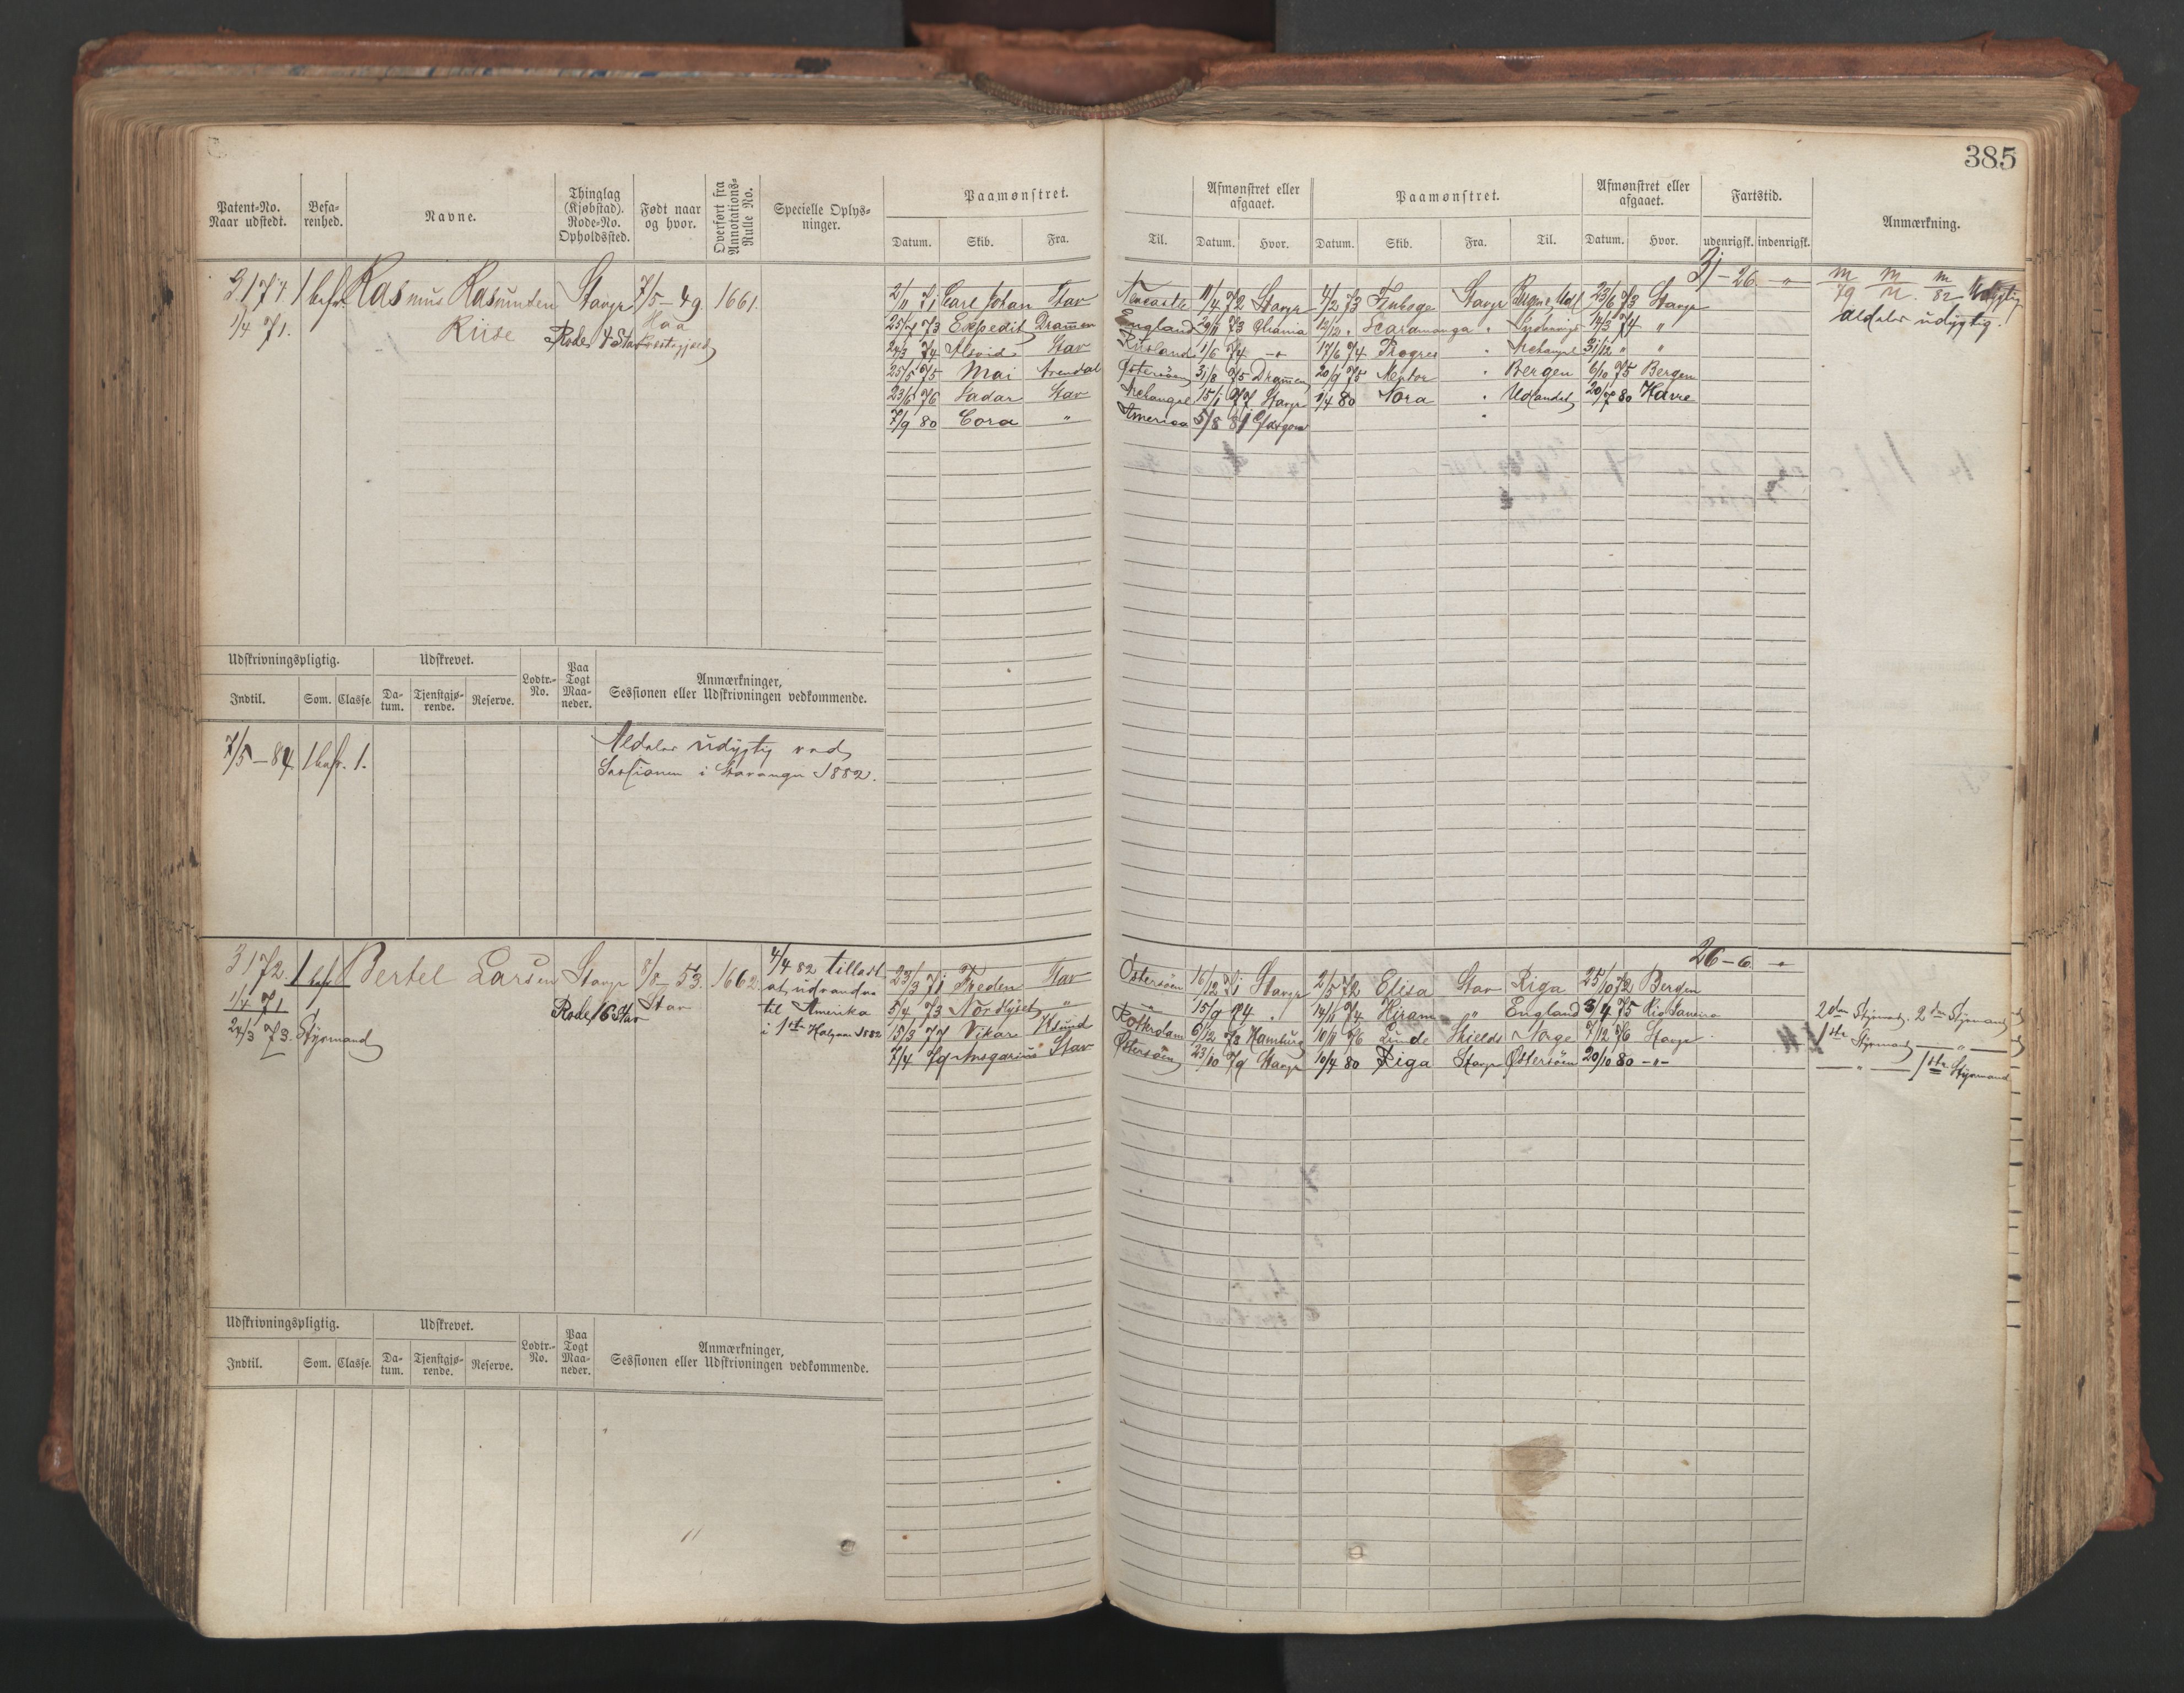 385
Patent-No. Naar udstedt. Befarenhed. Navne. Thinglag (Kjøbstad). Rode-No. Opholdssted. Født naar og hvor. Overført fra Annotations-Rulle No. Specielle Oplysninger. Paamønstret. Afmønstret eller afgaaet. Paamønstret. Afmønstret eller afgaaet. Fartstid. Anmærkning.
Datum. Skib. Fra. Til. Datum. Hvor. Datum. Skib. Fra. Til. Datum. Hvor. udenrigsk. indenrigsk.
31 - 26 "
3171. 1 bef. Rasmus Rasmussen Stavgr 7/5 - 49. 1661. 2/11 71 Carl Johan Stav Newcastle 11/4 72 Stavgr 4/2 73 Stavgr 23/6 73 Stavgr
1/4 71. Riise Rode 4 Stav Haa 25/7 73 Expedit Drammen England 29/11 73 Chania 12/12 " Scaramanga " 14/3 74 " aldeles udygtig.
24/3 74 Alvid Stav Rusland 1/6 74 -"- 17/6 74 Progres " Archangel 31/12 " "
25/5 75 Mai Arendal Østersøen 31/8 75 Drammen 20/9 75 Mentor " Bergen 6/10 75 Bergen
23/6 76 Stav Archangel 15/1 77 Stavgr 1/4 80 Nora " Udlandet 20/7 80 Havre
7/9 80 Cora " America 5/8 81 Glasgow
Udskrivningspligtig. Udskrevet. Lodtr.-No. Paa Togt Maaneder. Anmærkninger, Sessionen eller Udskrivningen vedkommende.
Indtil. Som. Classe. Datum. Tjenstgjørende. Reserve.
7/5 - 84. 1 bef. 1. Aldeles udygtig ved
Sessionen i Stavanger 1882.
26 - 6 "
3172. 1 bef. Bertel Larsen Stavgr 8/8 53. 1662. 4/4 82 tilladt 23/3 71 Freden Stav Østersøen 16/12 71 Stavgr 2/5 72 Elisa Stav Riga 25/10 72 Bergen
1/4 71 Rode 16 Stav Stav at udvandre 5/4 73 Nordlyset " -"- 15/9 74 " 14/11 74 Hiram " England 3/4 75 Rio Janeiro 2den Styrmand. 2den Styrmand
24/3 73. Styrmand til Amerika 15/3 77 Vikar Ksund Rotterdam 6/12 78 Hamburg 10/11 76 Linde Shields Norge 5/12 76 Stavgr 1ste Styrmand -"-
i 1ste Halvaar 1882 7/4 79 Ansgarius Stav Østersøen 23/10 79 Stavgr 10/4 80 Riga Stavgr Østersøen 20/10 80 -"- -"- 1ste Styrmand
Udskrivningspligtig. Udskrevet. Lodtr.-No. Paa Togt Maaneder. Anmærkninger, Sessionen eller Udskrivningen vedkommende.
Indtil. Som. Classe. Datum. Tjenstgjørende. Reserve.